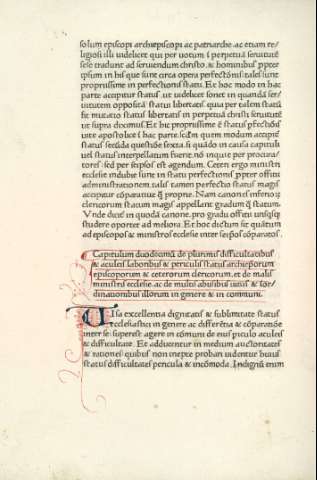 solum episcopi archiepiscopi ac patriarche ac etiam re/
ligiosi illi uidelicet qui per uotum i perpetuā seruitutē
sese tradunt ad seruiendum christo. & hominibus ppter
ipsum in his que sunt circa opera perfectōis tales sunt
propriissime in perfectionis statu. Et hoc modo in hac
parte accipitur status. ut uidelicet sonet in quandā ser/
uitutem oppositā status libertatis quia per talem statū
fit mutatio status libertatis in perpetuā christi seruitutē
ut supra diximus. Et hic propriissime ē status pfectōis
uite apostolice & hac parte. scdm quem modum accipit
status secūda questiōe sexta. si quādo in causa capituli
uel status interpellatum fuerit. nō inquit per procura/
tores sed per seipsos est agendum. Ceteri ergo ministri
ecclesie indubie sunt in statu perfectionis ppter officii
administrationem. talis tamen perfectio status magis
accipitur cōparatiue q propric. Nam canones inferioꝝ
clericorum statum magis appellant gradum q statum.
Vnde dicit in quodā canone. pro gradu officii unusqsq
studere oportet ad meliora. Et hoc dictum sit quātum
ad episcopos & ministros ecclesie inter seipsos cōparatos.
Capitulum duodecimū de plurimis difficultatibus
& aculeis laboribus & periculis status archieporum
episcoporum & ceterorum clericorum. et de malis
ministris ecclesie. ac de multis abusibus uitiis & sor/
dinationibus illorum in genere & in communi.
Visa excellentia dignitatis & sublimitate status
ecclesiastici in genere ac differētia & cōparatiōe
inter se. superest agere in cōmuni de eius piculo aculeis
& difficultate. Et adducentur in medium auctoritates
& rationes quibus non inepte probari uidentur huius
status difficultates pericula & incōmoda. Indignū enim